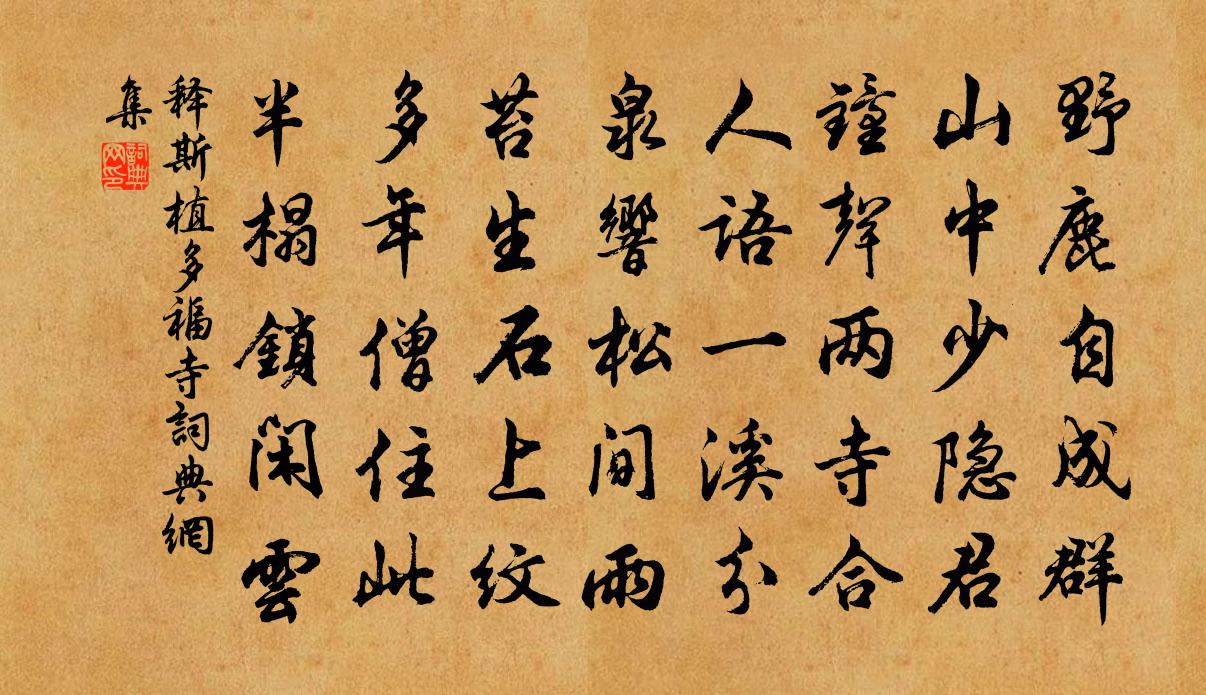 野鹿自成群
山中少隐君
鐘聲两寺合
人語一溪分
泉響松間雨
苔生石上紋
多年僧住此
半榻鎖閑雲
释斯植多福寺詞典網
集
詞典網印